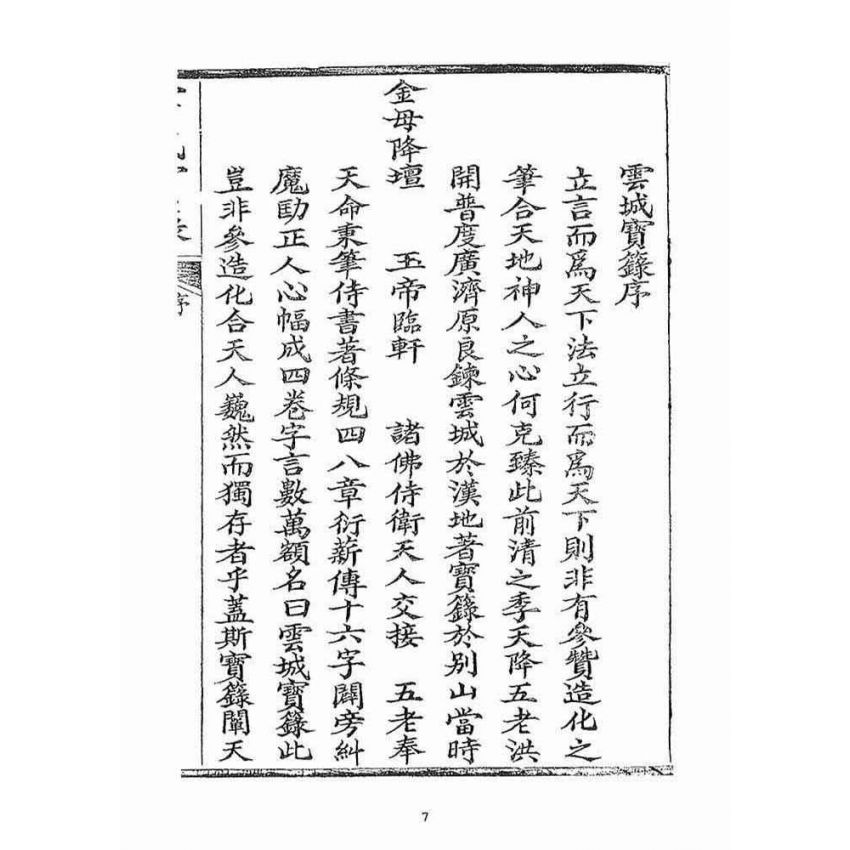 雲城寶籙序
立言而爲天下法立行而爲天下則非有參贊造化之
筆合天地神人之心何克臻此前清之季天降五老洪
開普度廣濟原良鍊雲城於漢地著寶籙於別山當時
金母降壇　玉帝臨軒　諸佛侍衛天人交接　五老奉
天命秉筆侍書著條規四八章衍薪傳十六字闢旁糾
魔勖正人心幅成四卷字言數萬額名曰雲城寶籙此
豈非參造化合天人巍然而獨存者乎蓋斯寶籙闡天
序
7